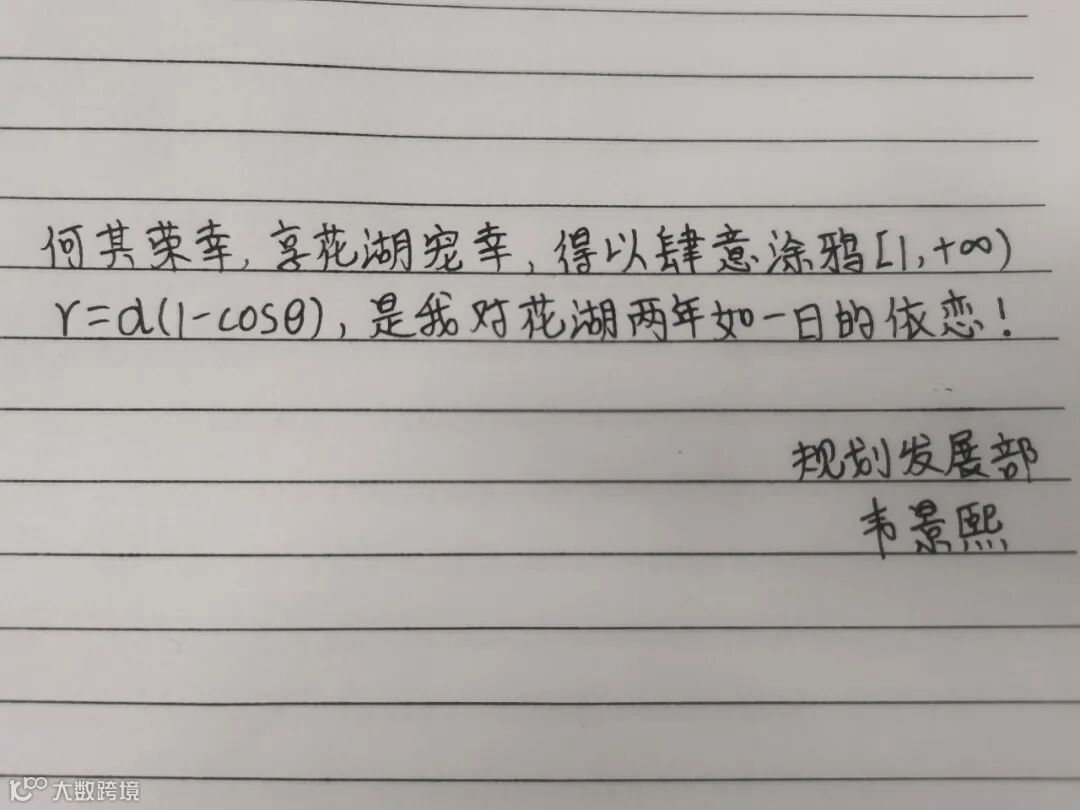 何其荣幸，享花湖宠幸，得以肆意涂鸦[1,+∞)
r=a(1-cosθ)，是我对花湖两年如一日的依恋！
规划发展部
韦景熙
大数跨境